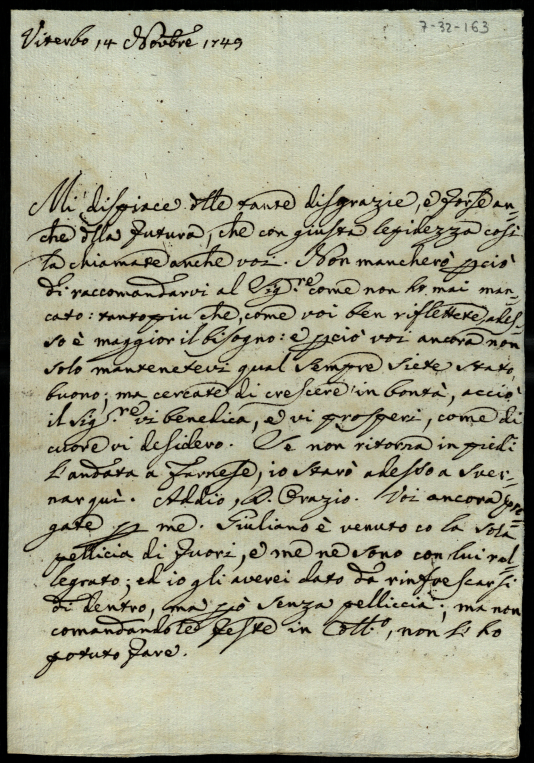 7-32-163
Viterbo, 14 Novbre 1749
Mi dispiace dlle tante disgrazie, e forse an=
che dlla futura, che con giusta lepidezza così
la chiamate anche voi. Non mancherò pciò
di raccomandarvi al Sig.re come non ho mai man=
cato: tanto più che, come voi ben riflettete, ades=
so è maggior il bisogno: e pciò voi ancora non
solo mantenetevi qual sempre siete stato,
buono; ma cercate di crescere in bontà, acciò
il Sig.re vi benedica, e vi prosperi, come di
cuore vi desidero. Se non ritorna in piedi
l'andata a Farnese, io starò adesso a sver=
nar quì. Addio, Orazio. Voi ancora pre=
gate p me. Giuliano è venuto co la sola
pelliccia di fuori, e me ne sono con lui ral=
legrato; ed io gli averei dato da rinfrescarsi
di dentro, ma però senza pelliccia; ma non
comandando feste in Coll.o, non l'ho
potuto fare.